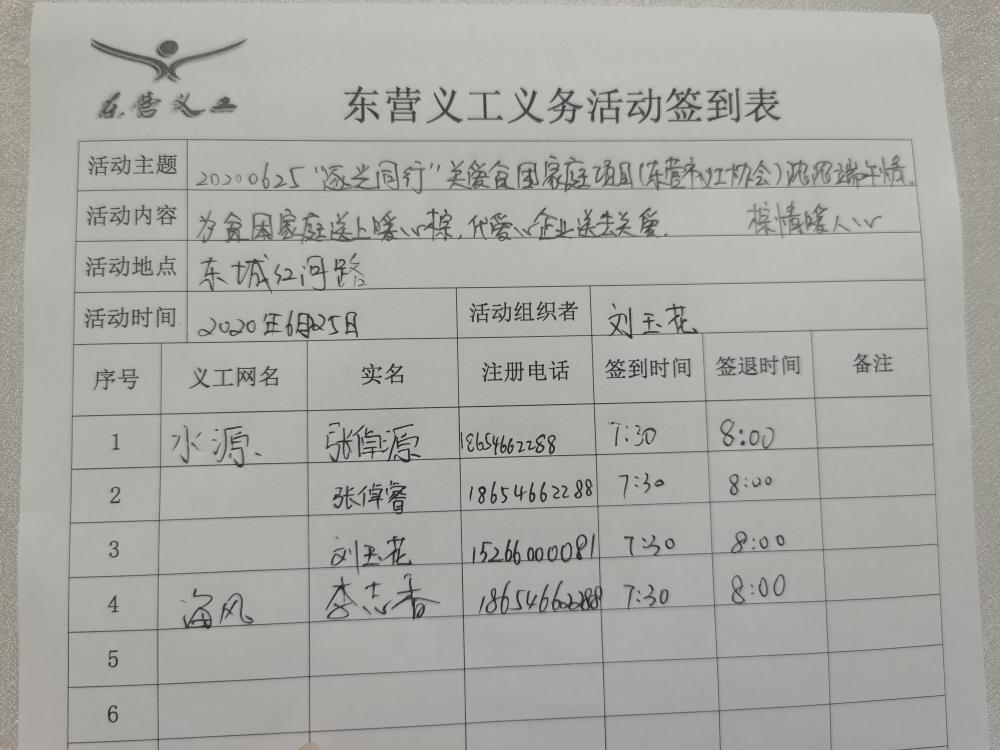 东营义工
东营义工义务活动签到表
活动主题 20200625“逐光同行”关爱贫困家庭项目(东营市义工协会)浓浓端午情,
活动内容 为贫困家庭送上暖心粽,代爱心企业送去关爱. 粽情暖人心
活动地点 东城红河路
活动时间 2020年6月25日 活动组织者 刘玉花
序号 义工网名 实名 注册电话 签到时间 签退时间 备注
1 水源、 张倬源 18654662288 7:30 8:00
2 张倬睿 18654662288 7:30 8:00
3 刘玉花 15266000081 7:30 8:00
4 海风 李志香 18654662288 7:30 8:00
5
6